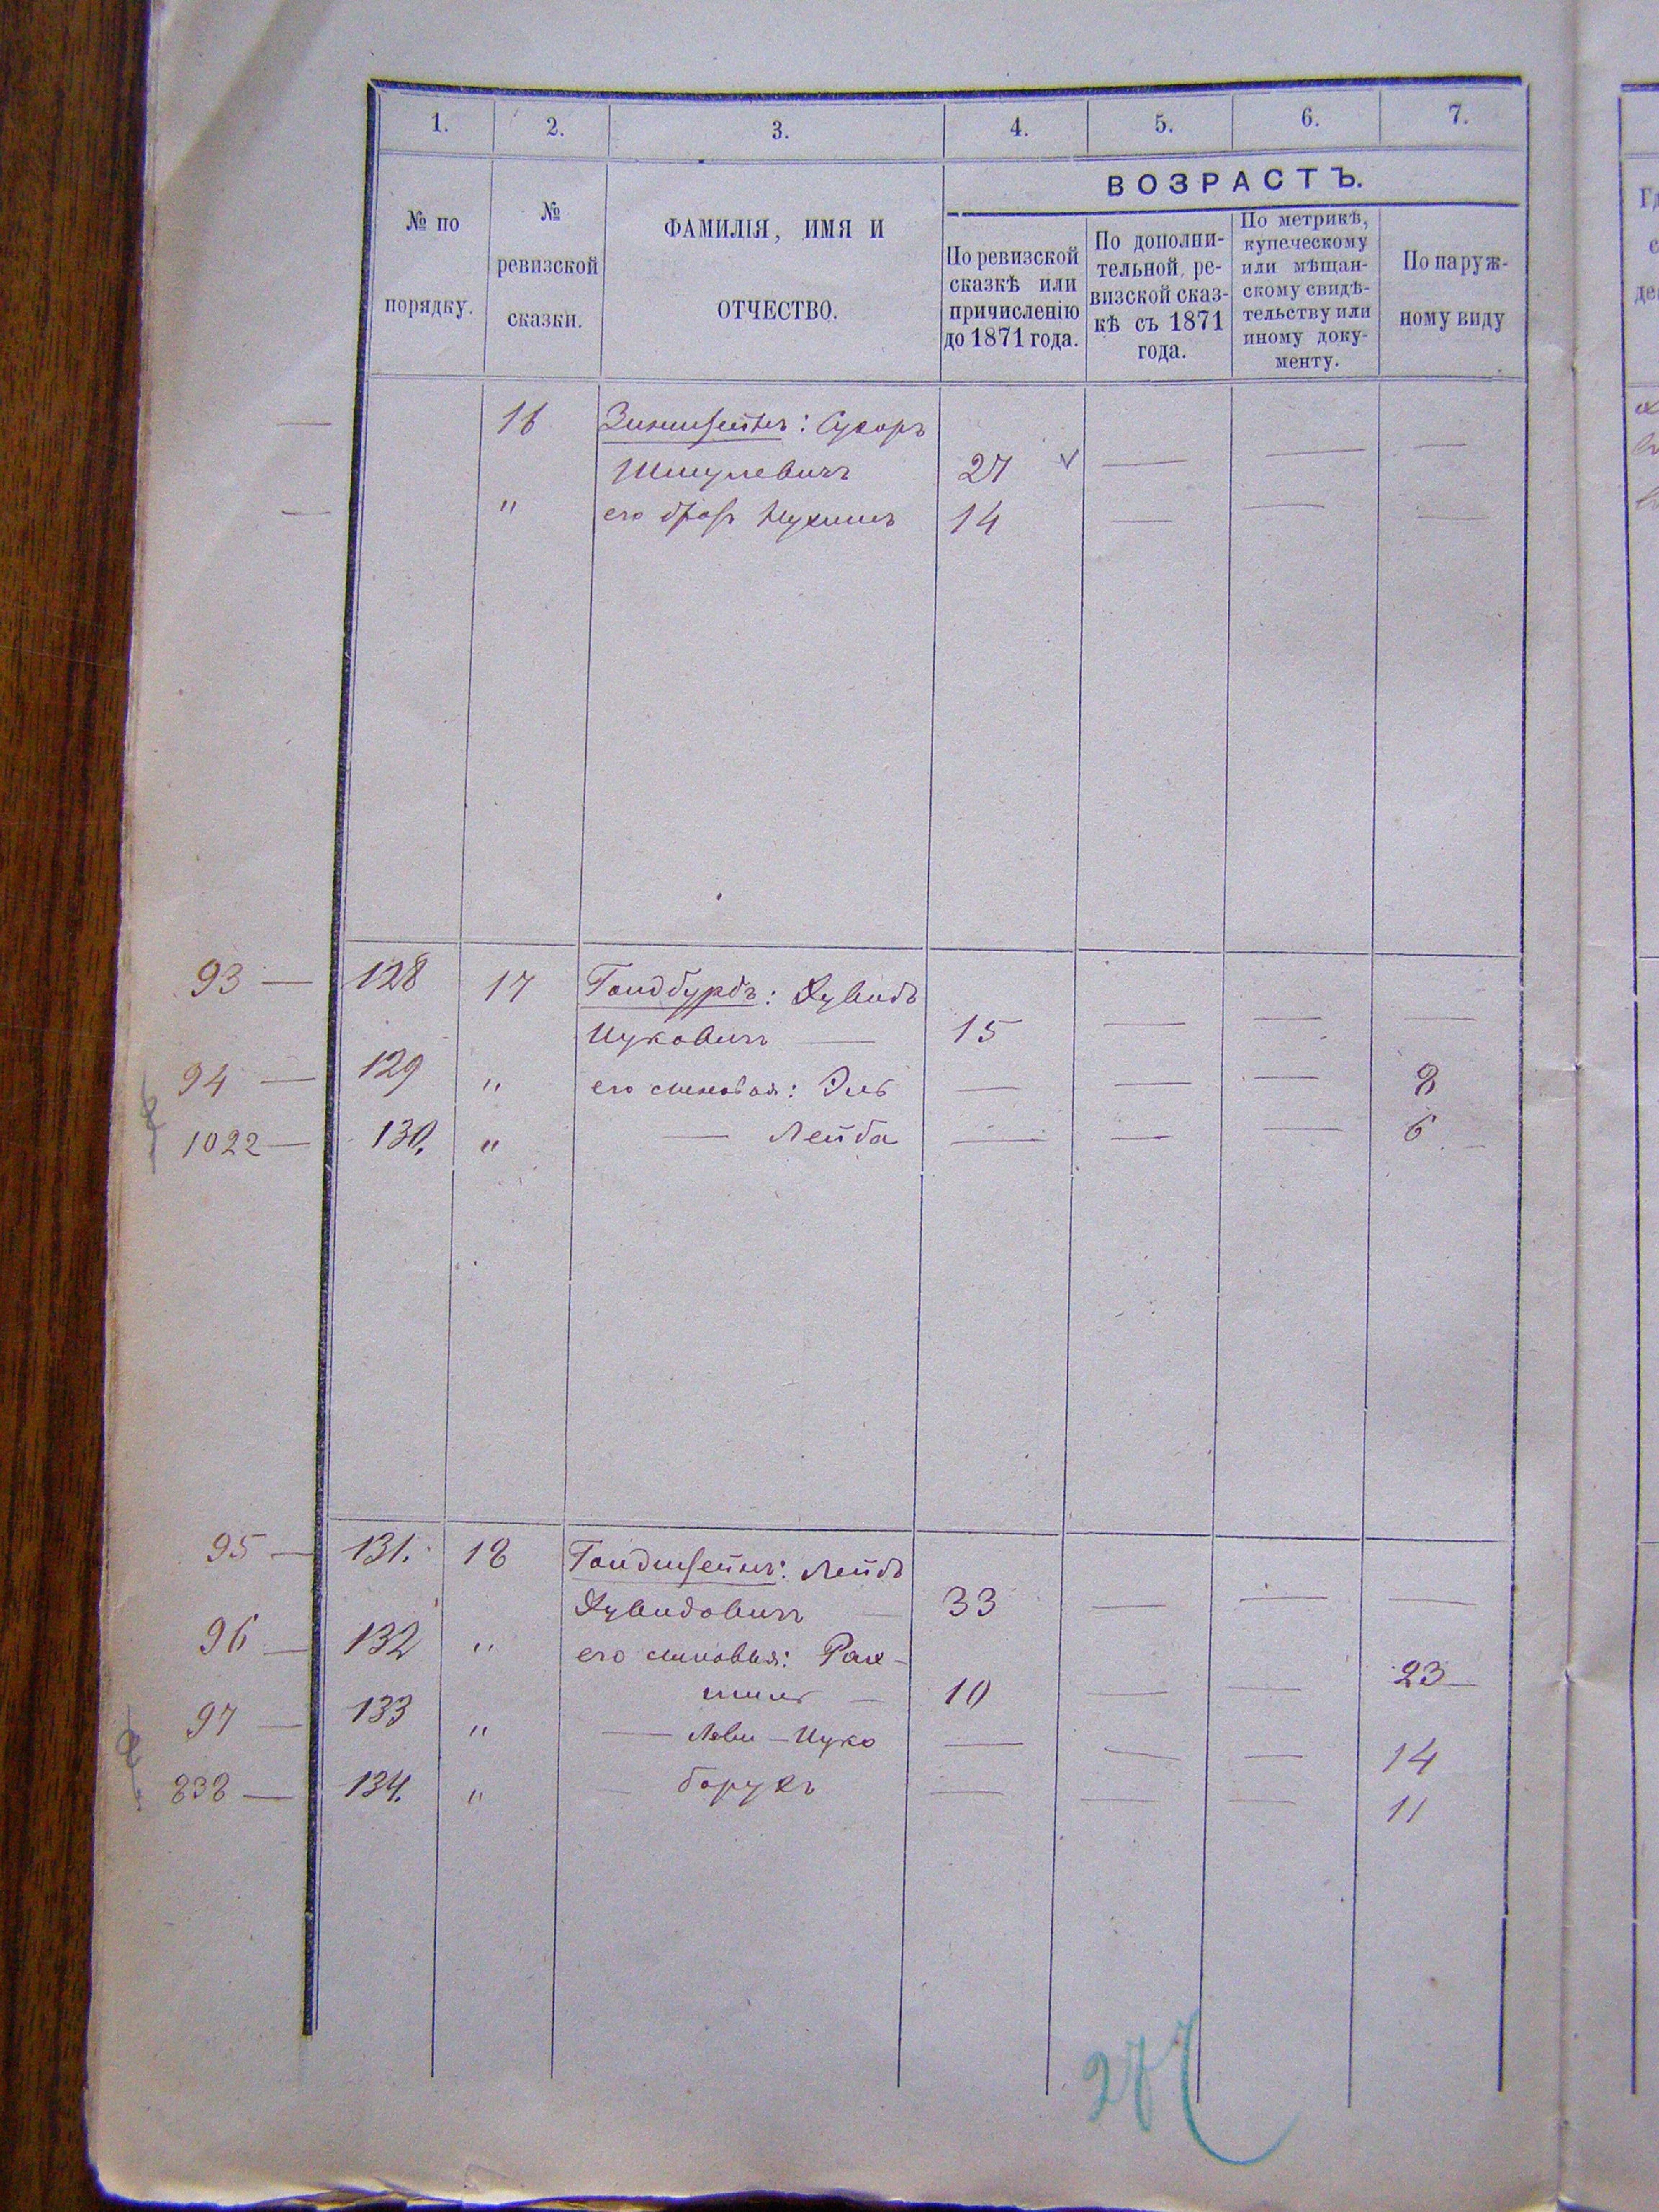 1. 2. 3. 4. 5. 6. 7.
ВОЗРАСТЪ.
№ по
порядку.
№
ревизской
сказки.
ФАМИЛІЯ, ИМЯ И
ОТЧЕСТВО.
По ревизской
сказкѣ или
причисленію
до 1871 года.
По дополни-
тельной ре-
визской сказ-
кѣ съ 1871
года.
По метрикѣ,
купеческому
или мѣщан-
скому свидѣ-
тельству или
иному доку-
менту.
По наруж-
ному виду
— 16
Шмулевичъ 27 — — —
— " его братъ 14 — — —
93 — 128 17 Гольдбурдъ: Дувидъ
Ицковичъ — 15 — — —
94 — 129 " его сыновья: Эль — — — 8
1022 — 130. " — Лейба — — — 6
95 — 131. 18 Гольдштейнъ: Лейбъ
Дувидовичъ — 33 — — —
96 — 132 " его сыновья: Рах-
миль — 10 — — 23
97 — 133 " — Леви-Ицко — — — 14
838 — 134. " — Борухъ — — — 11
277